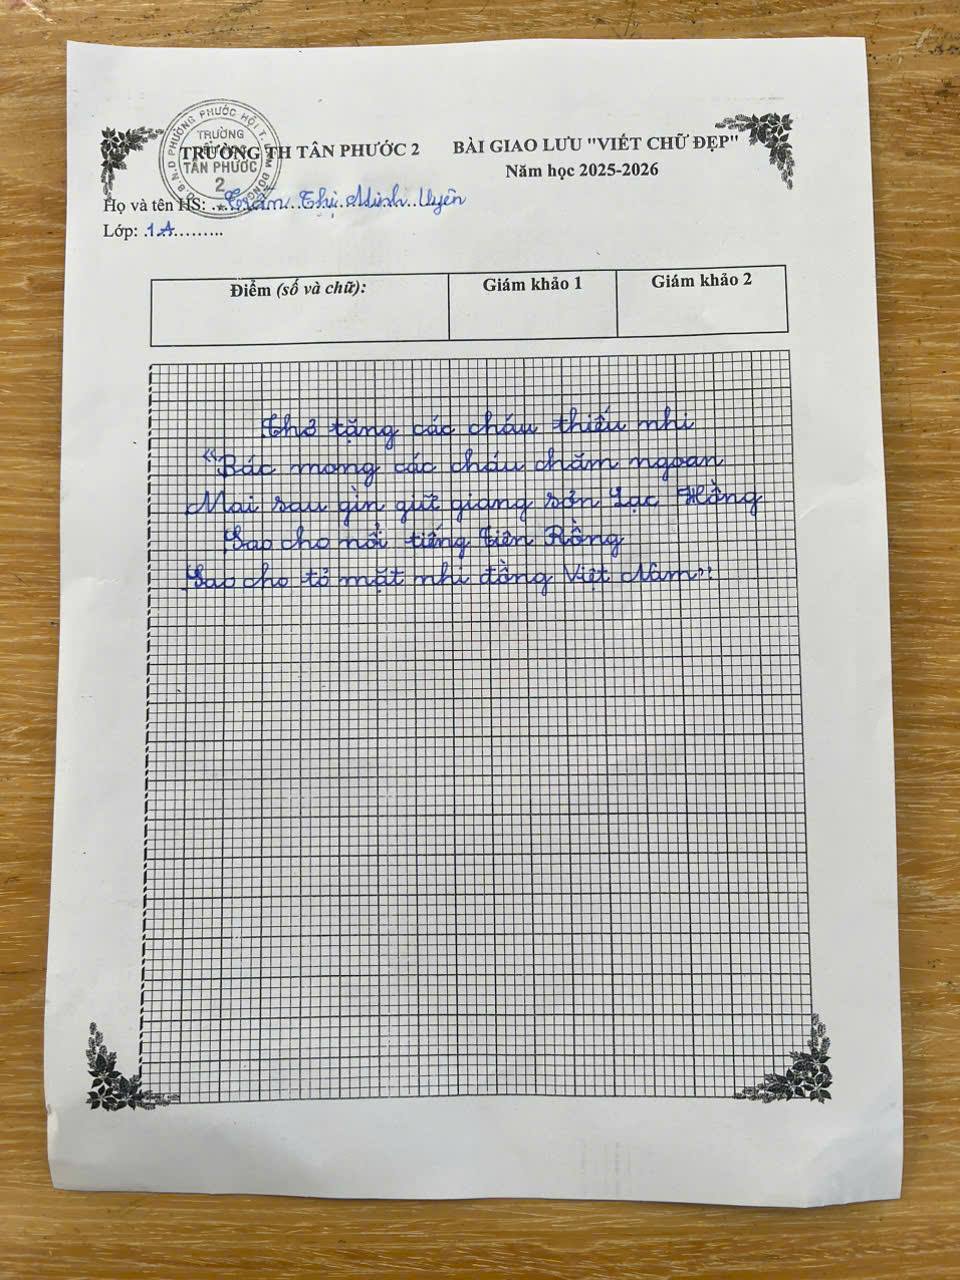 TRƯỜNG TH TÂN PHƯỚC 2 BÀI GIAO LƯU "VIẾT CHỮ ĐẸP"
Năm học 2025-2026
TRƯỜNG
TÂN PHƯỚC
2
Họ và tên HS: Trần Thị Minh Uyên
Lớp: 1A
Điểm (số và chữ): Giám khảo 1 Giám khảo 2
Thơ tặng các cháu thiếu nhi
“Bác mong các cháu chăm ngoan
Mai sau gìn giữ giang sơn Lạc Hồng
Sao cho nổi tiếng Tiên Rồng
Sao cho tỏ mặt nhi đồng Việt Nam”